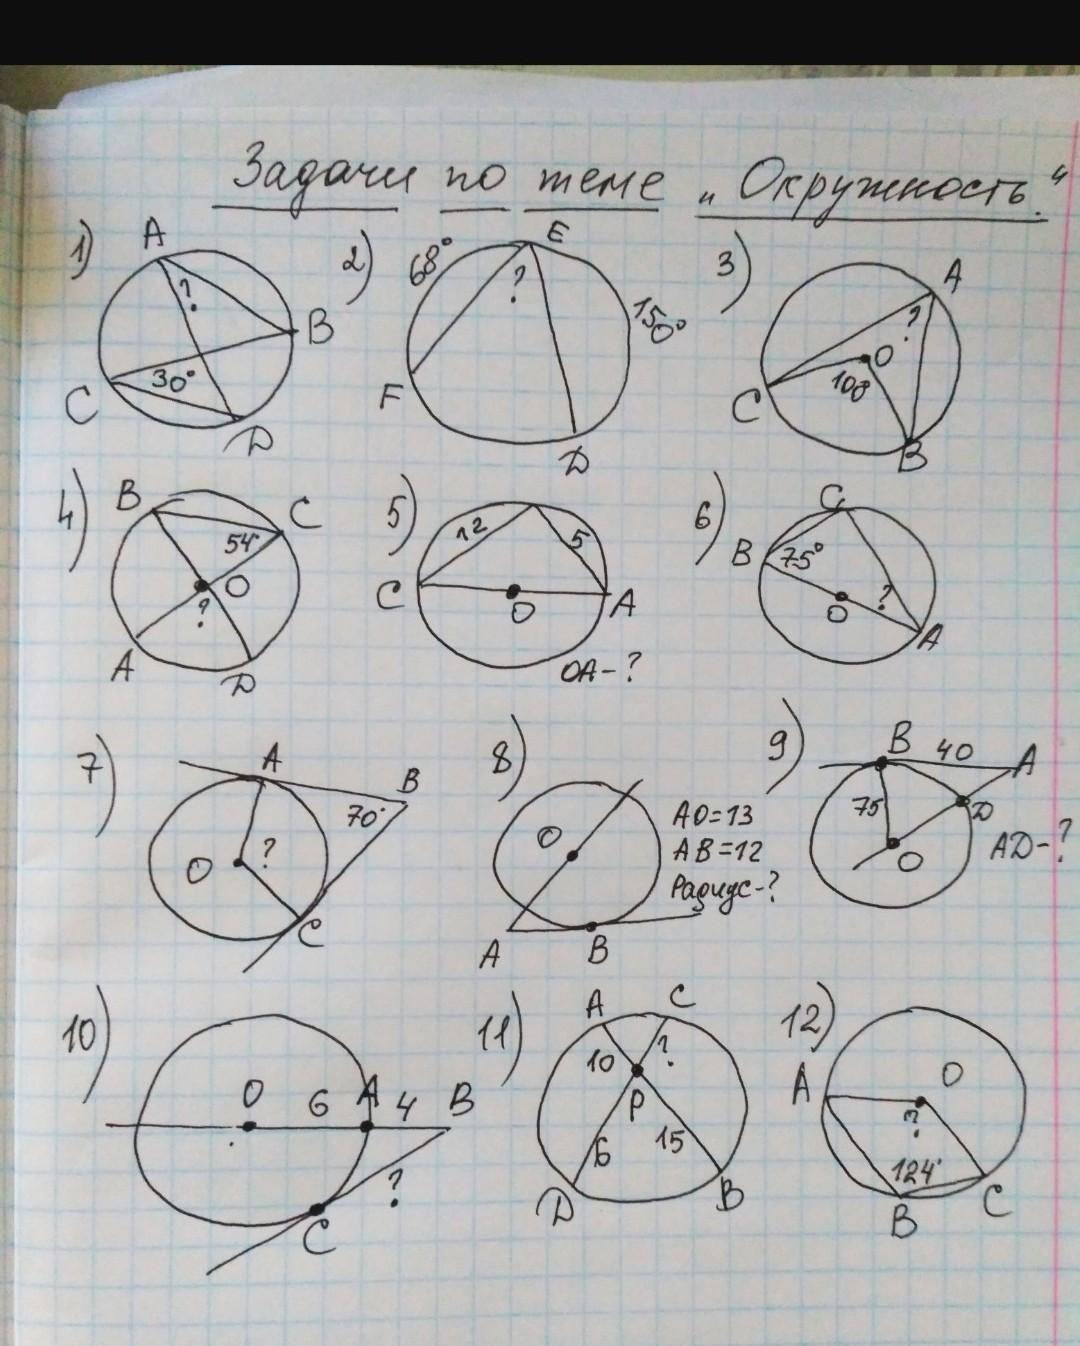 Задачи по теме „Окружность."
1) A B C D ? 30°
2) E F D 68° 150° ?
3) A B C O ? 100°
4) B C A D O 54° ?
5) C A O 12 5
OA-?
6) C B A O 75° ?
7) A B C O 70° ?
8) O A B
AO=13
AB=12
Радиус-?
9) B 40 A 75 D O
AD-?
10) O 6 A 4 B C ?
11) A C 10 ? P 6 15 D B
12) A O ? 124° B C